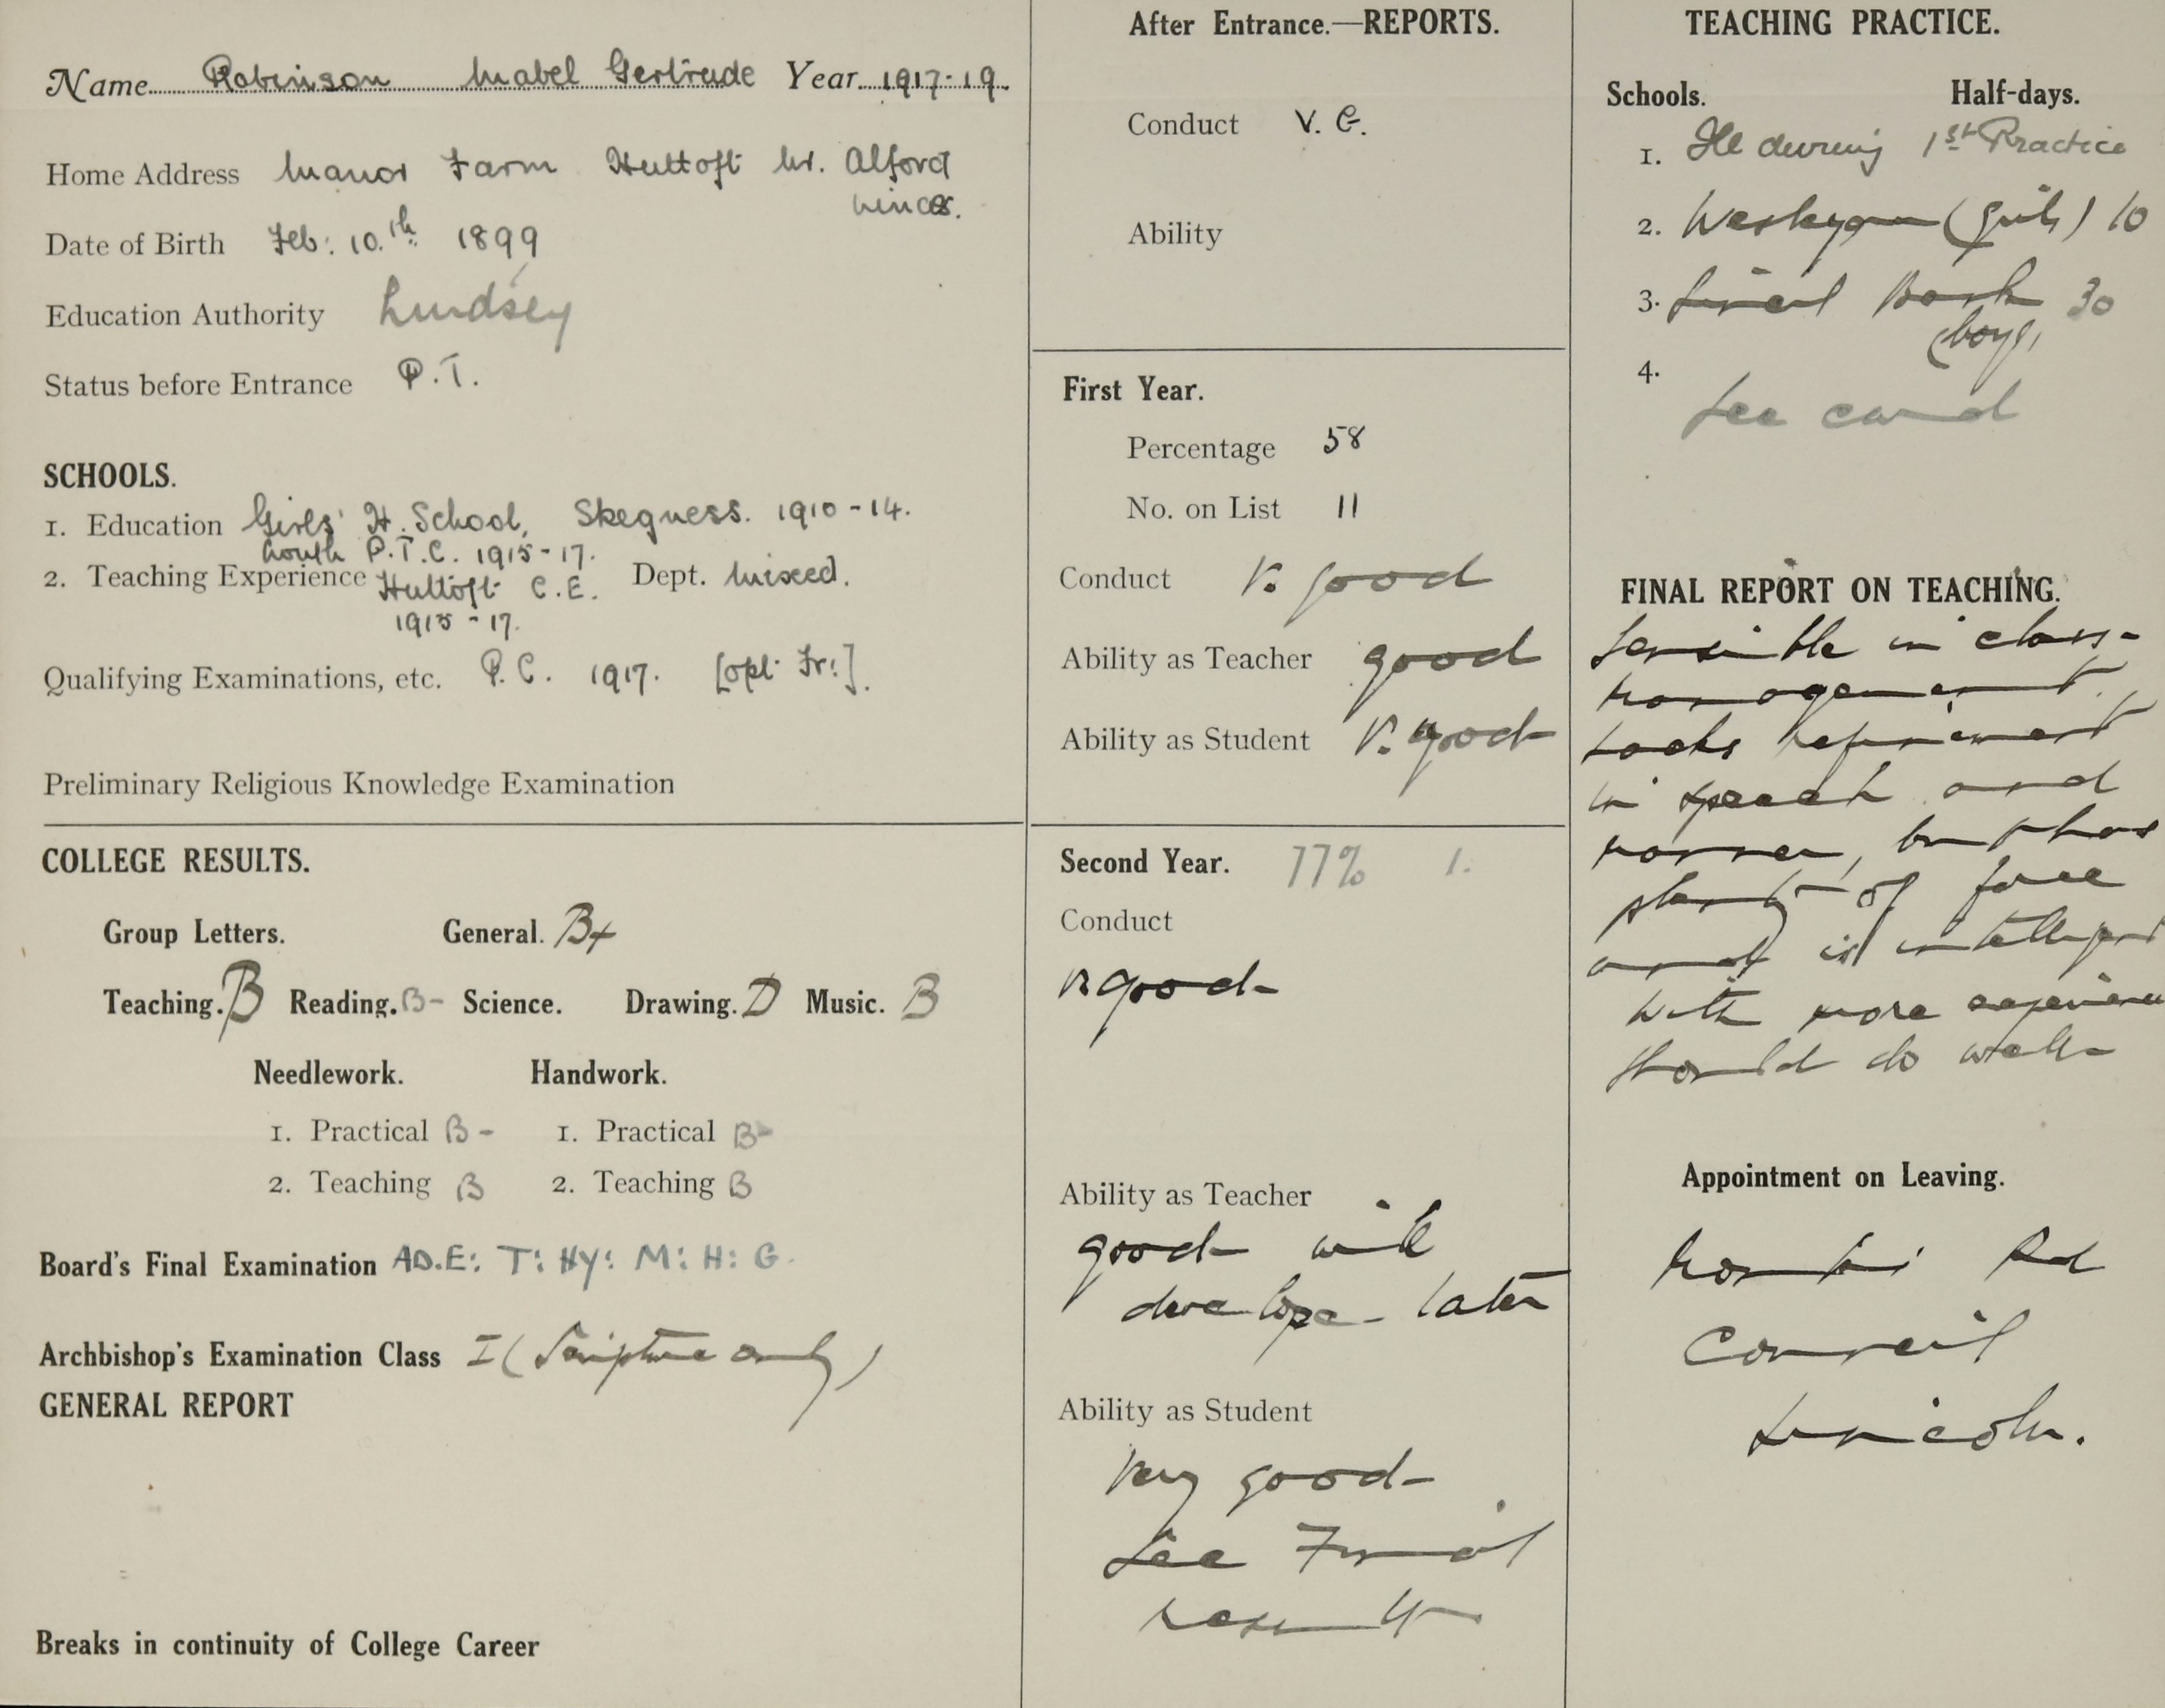 Name Robinson Mabel Gertrude Year 1917-19.
Home Address Manor Farm Huttoft Nr. Alford
Lincs.
Date of Birth Feb: 10.th 1899
Education Authority Lindsey
Status before Entrance P.T.
SCHOOLS.
1. Education Girls' H. School, Skegness. 1910-14.
Louth P.T.C. 1915-17.
2. Teaching Experience Huttoft C.E. Dept. Mixed.
1915-17.
Qualifying Examinations, etc. P.C. 1917. [opt. Fr:].
Preliminary Religious Knowledge Examination
COLLEGE RESULTS.
Group Letters. General. B+
Teaching. B Reading. B- Science. Drawing. D Music. B
Needlework. Handwork.
1. Practical B- 1. Practical B-
2. Teaching B 2. Teaching B
Board's Final Examination AD.E: T: Hy: M: H: G.
Archbishop's Examination Class I (Scripture only)
GENERAL REPORT
Breaks in continuity of College Career
After Entrance.—REPORTS.
Conduct V. G.
Ability
First Year.
Percentage 58
No. on List 11
Conduct V. good
Ability as Teacher good
Ability as Student V. good
Second Year. 77% 1.
Conduct
V good
Ability as Teacher
good will
develope later
Ability as Student
Very good
See Final
result
TEACHING PRACTICE.
Schools. Half-days.
1. Ill during 1st Practice
2. Wesleyan (girls) 10
3. Sincil Bank 30
(boys)
4.
See card
FINAL REPORT ON TEACHING.
Sensible in class-
management.
Lacks refinement
in speech and
manner, but has
plenty of force
and is intelligent
With more experience
should do well
Appointment on Leaving.
Monks Rd
Council
Lincoln.